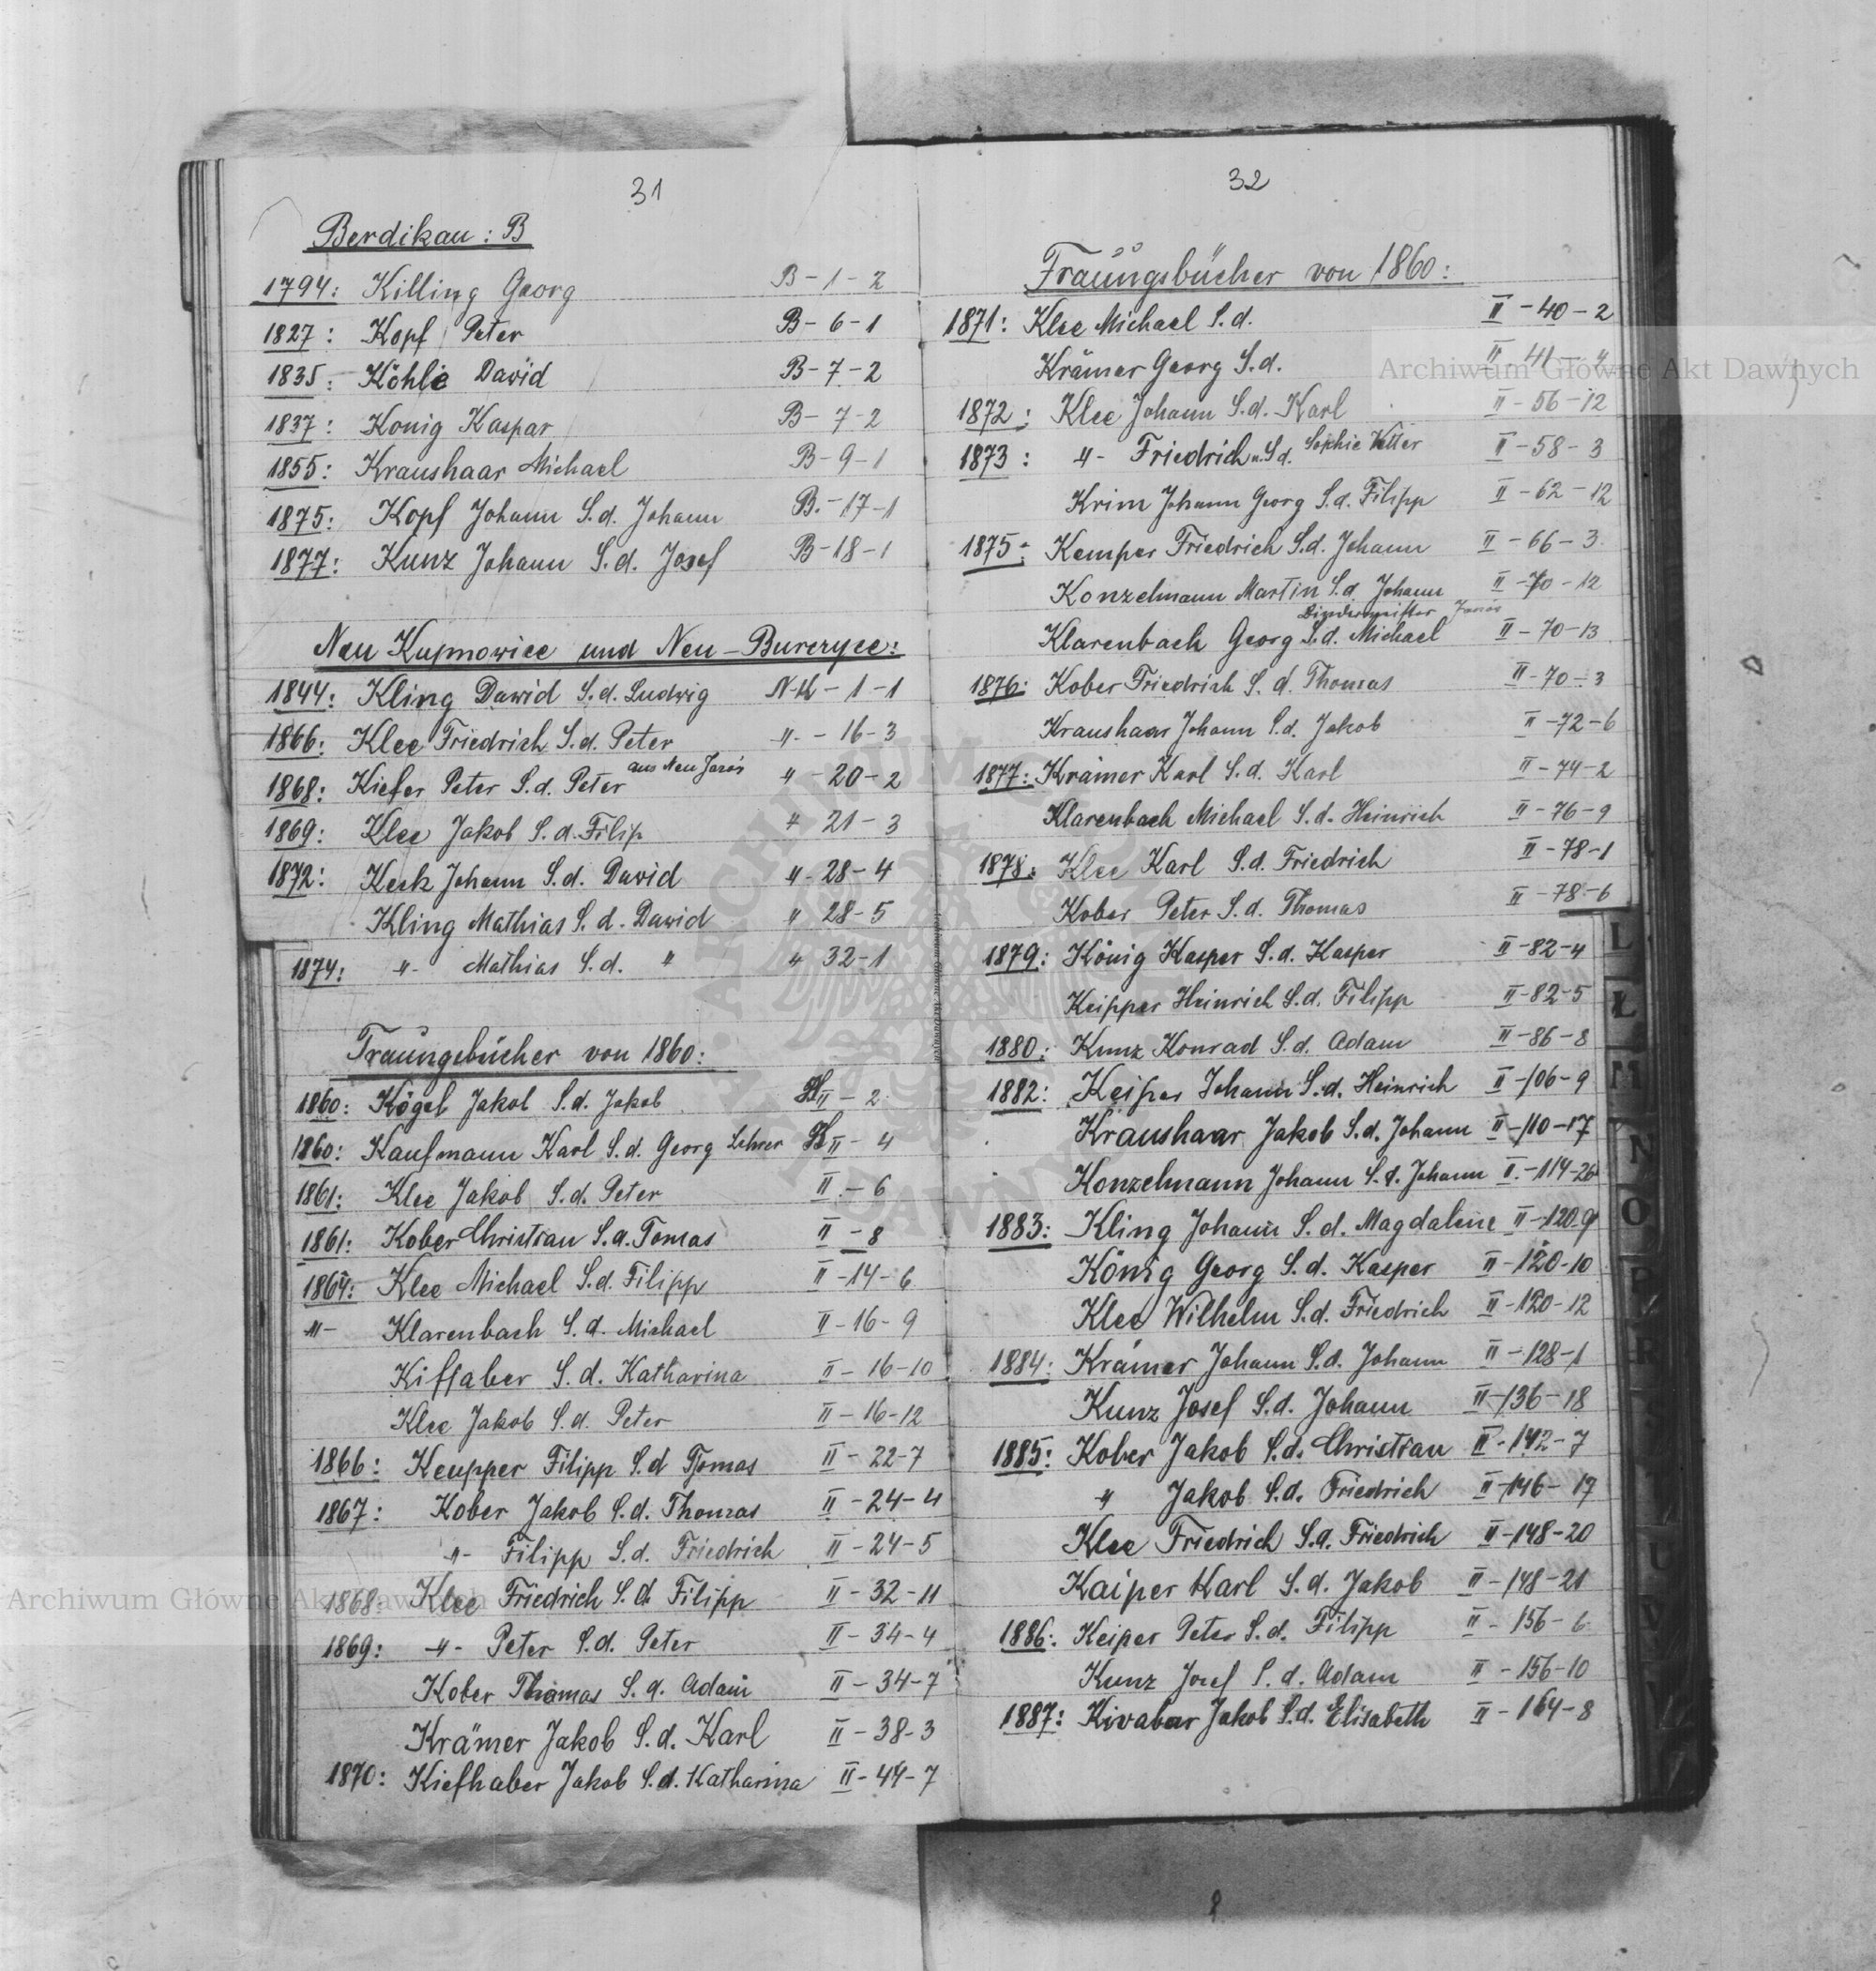 31
Berdikau: B
1794: Killing Georg B-1-2
1827: Kopf Peter B-6-1
1835: Köhle Dawid B-7-2
1837: Konig Kaspar B-7-2
1855: Kraushaar Michael B-9-1
1875: Kopf Johann S.d. Johann B.-17-1
1877: Kunz Johann S.d. Josef B-18-1
Neu Kupnowice und Neu-Burczyce:
1844: Kling Dawid S.d. Ludwig 1-1
1866: Klee Friedrich S.d. Peter -"- 16-3
1868: Kiefer Peter S.d. Peter aus Neu Jaroš " -20-2
1869: Klee Jakob S.d. Filip " 21-3
1872: Keck Johann S.d. David " 28-4
Kling Mathias S.d. Dawid " 28-5
1874: -"- Mathias S.d. " " 32-1
Trauungsbücher von 1860:
1860: Kögel Jakob S.d. Jakob II-2
1860: Kaufmann Karl S.d. Georg Lehrer II-4
1861: Klee Jakob S.d. Peter II-6
1861: Kober Christian S.d. Tomas II-8
1864: Klee Michael S.d. Filipp II-14-6
-"- Klarenbach S.d. Michael II-16-9
Kiffaber S.d. Katharina II-16-10
Klee Jakob S.d. Peter II-16-12
1866: Keupper Filipp S.d Tomas II-22-7
1867: Kober Jakob S.d. Thomas II-24-4
-"- Filipp S.d. Friedrich II-24-5
1868: Klee Friedrich S.d. Filipp II-32-11
1869: -"- Peter S.d. Peter II-34-4
Kober Thomas S.d. Adam II-34-7
Krämer Jakob S.d. Karl II-38-3
1870: Kiefhaber Jakob S.d. Katharina II-44-7
32
Trauungsbücher von 1860:
1871: Klee Michael S.d. II-40-2
Krämer Georg S.d. II-41-4
1872: Klee Johann S.d. Karl II-56-12
1873: -"- Friedrich u. S.d. Sophie Vetter II-58-3
Krim Johann Georg S.d. Filipp II-62-12
1875: Kemper Friedrich S.d. Johann II-66-3
Konzelmann Martin S.d. Johann II-70-12
Klarenbach Georg S.d. Michael II-70-13
1876: Kober Friedrich S.d. Thomas II-70-3
Kraushaar Johann S.d. Jakob II-72-6
1877: Krämer Karl S.d. Karl II-74-2
Klarenbach Michael S.d. Heinrich II-76-9
1878: Klee Karl S.d. Friedrich II-78-1
Kober Peter S.d. Thomas II-78-6
1879: König Kasper S.d. Kasper II-82-4
Keipper Heinrich S.d. Filipp II-82-5
1880: Kunz Konrad S.d. Adam II-86-8
1882: Keiper Johann S.d. Heinrich II-106-9
Kraushaar Jakob S.d. Johann II-110-17
Konzelmann Johann S.d. Johann II.-114-26
1883: Kling Johann S.d. Magdalene II-120 9
König Georg S.d. Kasper II-120-10
Klee Wilhelm S.d. Friedrich II-120-12
1884: Krämer Johann S.d. Johann II-128-1
Kunz Josef S.d. Johann II-136-18
1885: Kober Jakob S.d. Christian II-142-7
" Jakob S.d. Friedrich II-146-17
Klee Friedrich S.d. Friedrich II-148-20
Kaiper Karl S.d. Jakob II-148-21
1886: Keiper Peter S.d. Filipp II-156-6
Kunz Josef S.d. Adam II-156-10
1887: Kivabar Jakob S.d. Elisabeth II-164-8
L
Ł
M
N
O
P
R
U
Archiwum Główne Akt Dawnych
Archiwum Główne Akt Dawnych